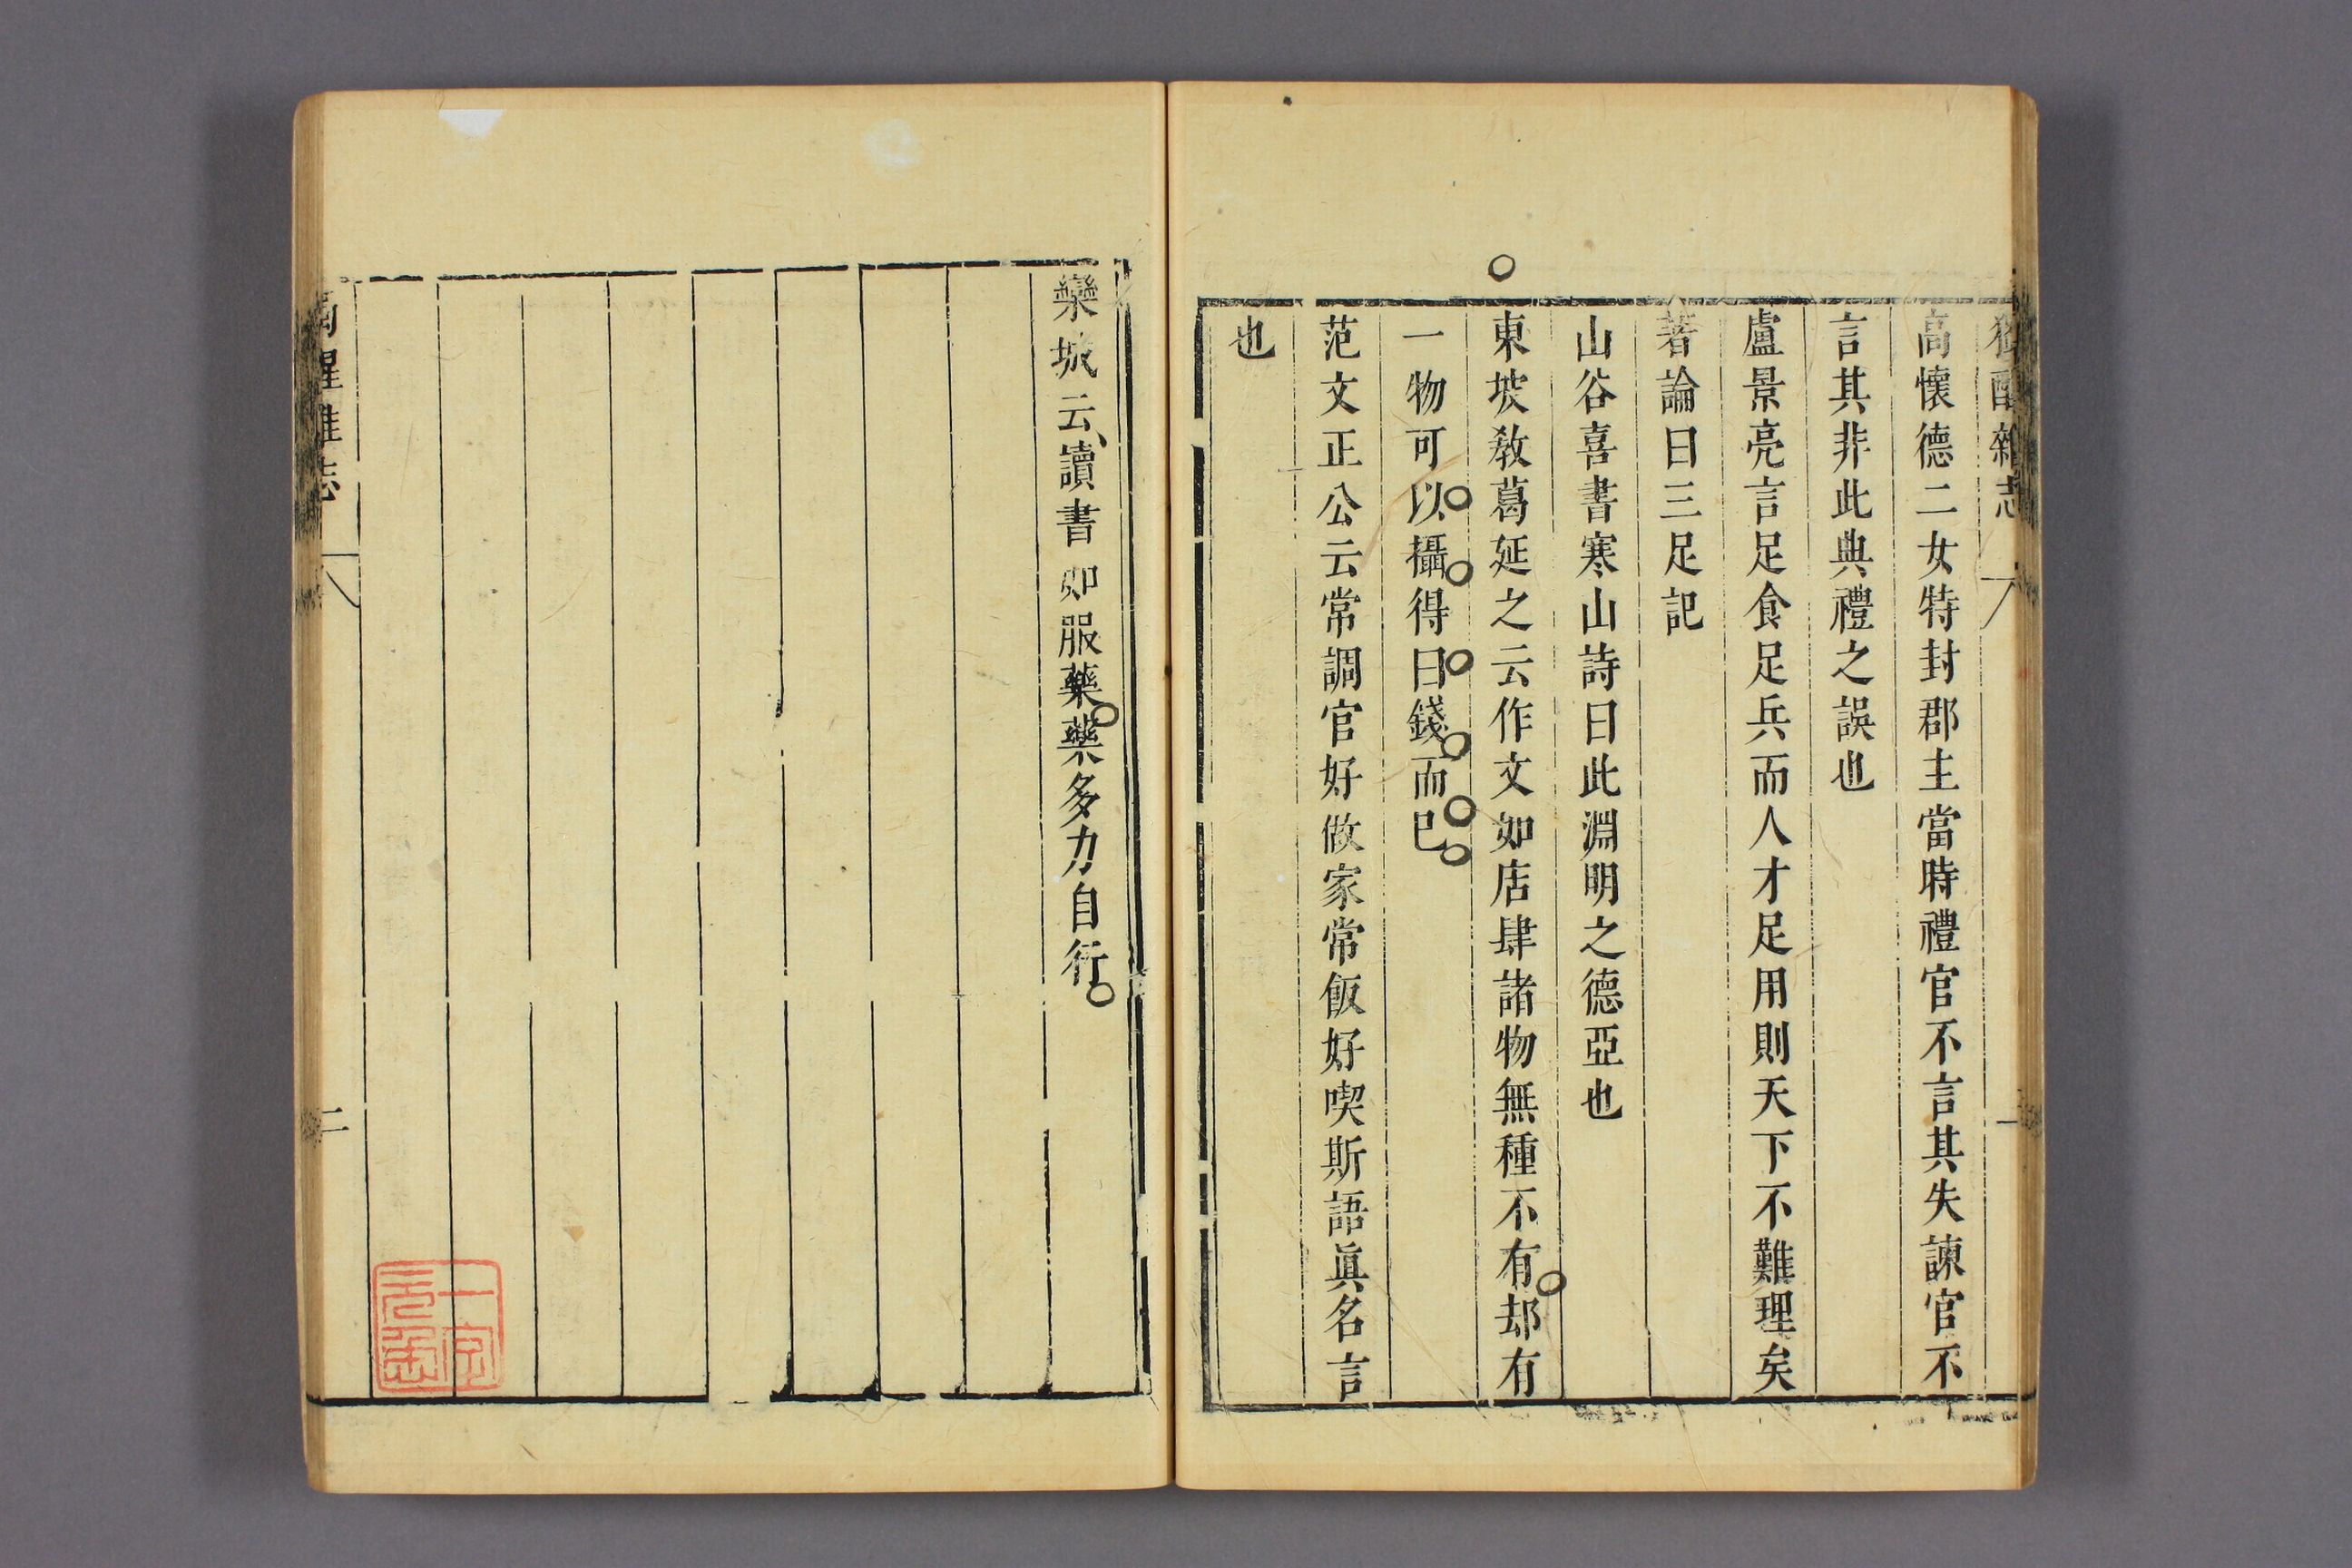 獨醒雜志 一
高懷德二女特封郡主當時禮官不言其失諫官不
言其非此典禮之誤也
盧景亮言足食足兵而人才足用則天下不難理矣
著論曰三足記
山谷喜書寒山詩曰此淵明之德亞也
東坡敎葛延之云作文如店肆諸物無種不有却有
一物可以攝得曰錢而已
范文正公云常調官好做家常飯好喫斯語眞名言
也
欒城云讀書如服藥藥多力自行
獨醒雜志 二